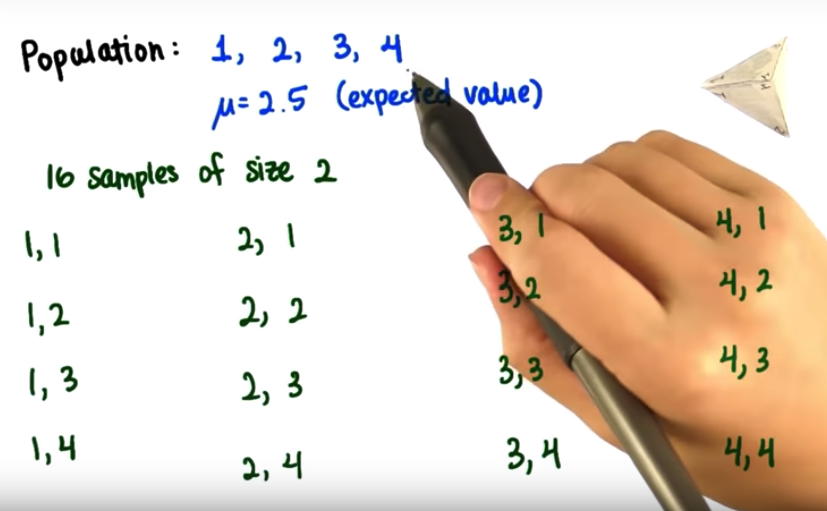 Population: 1, 2, 3, 4
μ = 2.5 (expected value)
16 samples of size 2
1, 1 2, 1 3, 1 4, 1
1, 2 2, 2 3, 2 4, 2
1, 3 2, 3 3, 3 4, 3
1, 4 2, 4 3, 4 4, 4